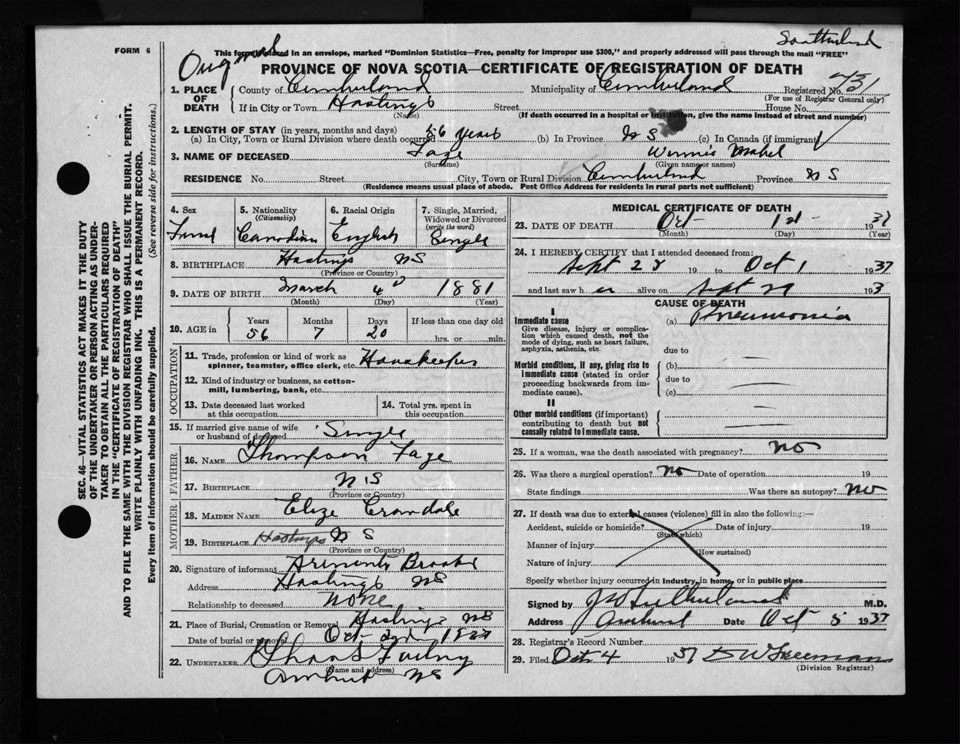 FORM 6
This form
in an envelope, marked "Dominion Statistics—Free, penalty for improper use $300," and properly addressed will pass through the mail "FREE"
PROVINCE OF NOVA SCOTIA—CERTIFICATE OF REGISTRATION OF DEATH
1. PLACE OF DEATH
County of Cumberland Municipality of Cumberland Registered No.
(For use of Registrar General only)
If in City or Town Hastings Street House No.
(Name) (If death occurred in a hospital or institution, give the name instead of street and number)
2. LENGTH OF STAY (in years, months and days)
(a) In City, Town or Rural Division where death occurred 56 years (b) In Province N S (c) In Canada (if immigrant)
3. NAME OF DECEASED Winnie Mabel
(Surname) (Given name or names)
RESIDENCE No. Street City, Town or Rural Division Cumberland Province N S
(Residence means usual place of abode. Post Office Address for residents in rural parts not sufficient)
4. Sex
5. Nationality
(Citizenship)
Canadian
6. Racial Origin
English
7. Single, Married, Widowed or Divorced
(write the word)
Single
8. BIRTHPLACE Hastings NS
(Province or Country)
9. DATE OF BIRTH March 4 1881
(Month) (Day) (Year)
10. AGE in
Years Months Days If less than one day old
56 7 20 hrs. or min.
OCCUPATION
11. Trade, profession or kind of work as
spinner, teamster, office clerk, etc. Housekeeper
12. Kind of industry or business, as cotton-
mill, lumbering, bank, etc.
13. Date deceased last worked
at this occupation
14. Total yrs. spent in
this occupation
15. If married give name of wife
or husband of deceased Single
FATHER
16. NAME Thompson
17. BIRTHPLACE N S
(Province or Country)
MOTHER
18. MAIDEN NAME
19. BIRTHPLACE Hastings N S
(Province or Country)
20. Signature of informant
Address Hastings NS
Relationship to deceased none
21. Place of Burial, Cremation or Removal Hastings NS
Date of burial or removal Oct 2nd
22. UNDERTAKER
(Name and address)
Amherst NS
MEDICAL CERTIFICATE OF DEATH
23. DATE OF DEATH Oct 1st 1937
(Month) (Day) (Year)
24. I HEREBY CERTIFY that I attended deceased from:
19 to Oct 1 1937
and last saw h er alive on Sept 29 193
CAUSE OF DEATH
I
Immediate cause (a) Pneumonia
Give disease, injury or complica-
tion which caused death, not the
mode of dying, such as heart failure,
asphyxia, asthenia, etc. due to
Morbid conditions, if any, giving rise to (b)
immediate cause (stated in order due to
proceeding backwards from im-
mediate cause). (c)
II
Other morbid conditions (if important)
contributing to death but not
causally related to immediate cause.
25. If a woman, was the death associated with pregnancy? no
26. Was there a surgical operation? no Date of operation 19
State findings Was there an autopsy? no
27. If death was due to external causes (violence) fill in also the following:—
Accident, suicide or homicide? Date of injury 19
(State which)
Manner of injury
(How sustained)
Nature of injury
Specify whether injury occurred in industry, in home, or in public place
Signed by M.D.
Address Amherst Date Oct 5 1937
28. Registrar's Record Number
29. Filed Oct 4 1937 D W Freeman
(Division Registrar)
SEC. 46—VITAL STATISTICS ACT MAKES IT THE DUTY
OF THE UNDERTAKER OR PERSON ACTING AS UNDER-
TAKER TO OBTAIN ALL THE PARTICULARS REQUIRED
IN THE "CERTIFICATE OF REGISTRATION OF DEATH"
AND TO FILE THE SAME WITH THE DIVISION REGISTRAR WHO SHALL ISSUE THE BURIAL PERMIT.
WRITE PLAINLY WITH UNFADING INK. THIS IS A PERMANENT RECORD.
Every item of information should be carefully supplied. (See reverse side for instructions.)